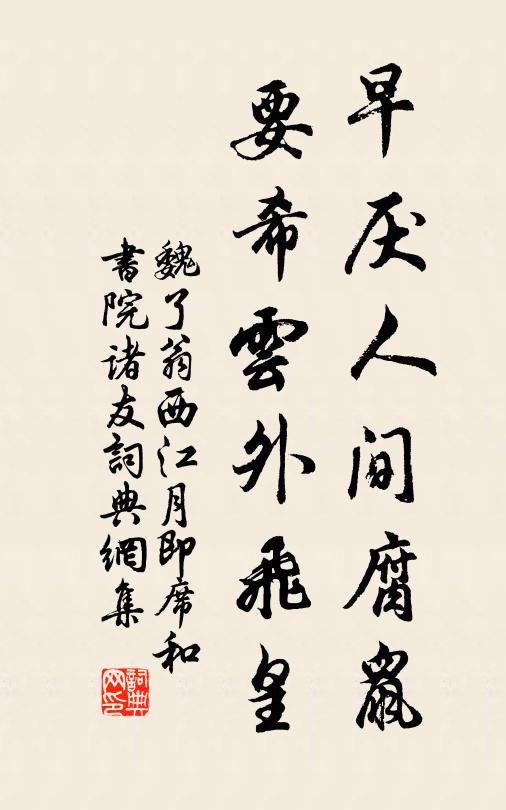 早厌人间腐鼠
要希雲外飛皇
魏了翁西江月即席和
書院诸友詞典網集
詞典网印